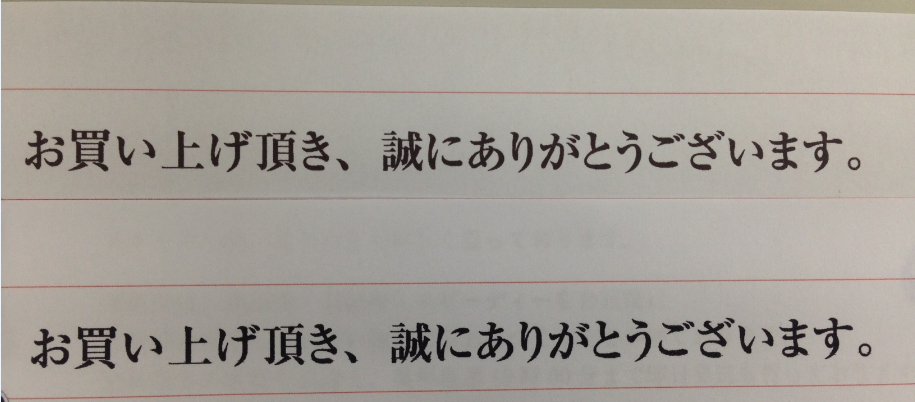 お買い上げ頂き、誠にありがとうございます。
お買い上げ頂き、誠にありがとうございます。